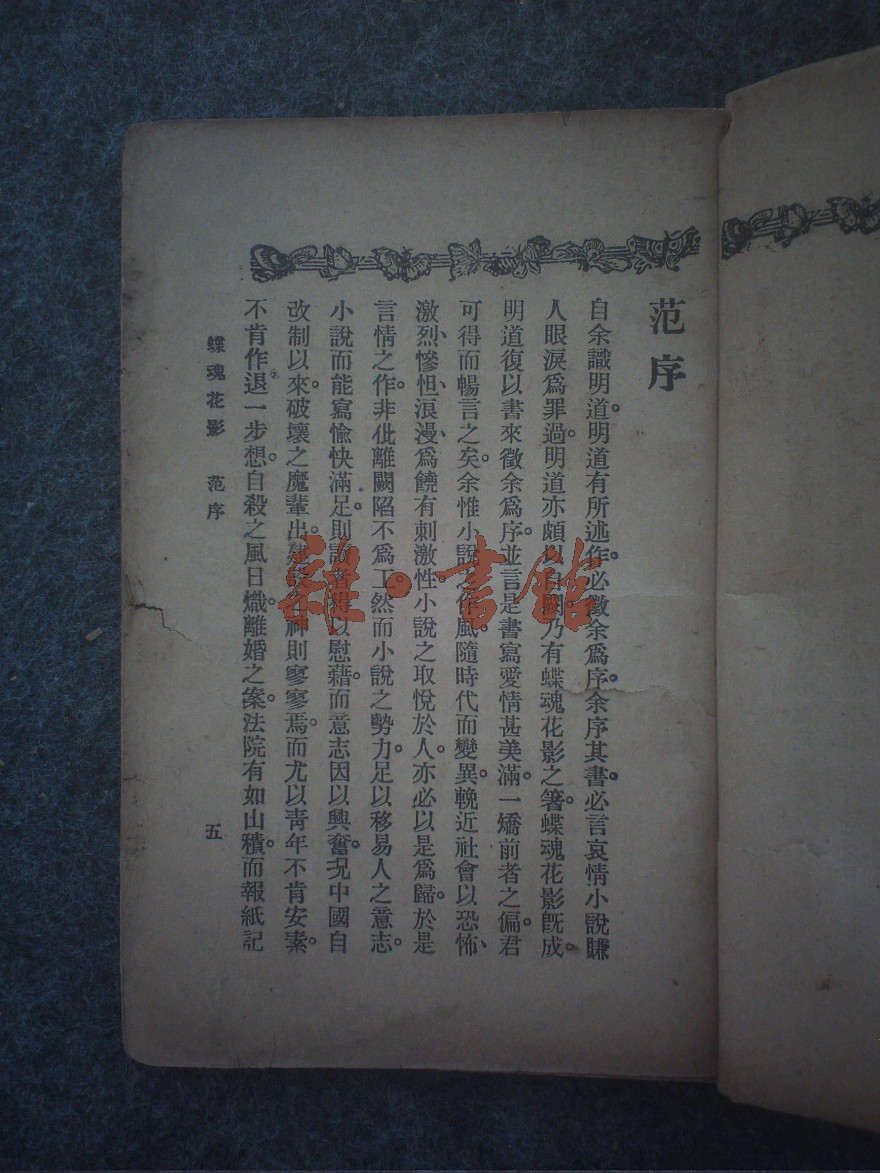 范序
自余識明道。明道有所述作。必徵余爲序。余序其書。必言哀情小說賺
人眼淚爲罪過。明道亦頗以自闕。乃有蝶魂花影之箸。蝶魂花影旣成。
明道復以書來徵余爲序。並言是書寫愛情甚美滿。一矯前者之偏。君
可得而暢言之矣。余惟小說之作風。隨時代而變異。輓近社會以恐怖、
激烈、慘怛、浪漫、爲饒有刺激性。小說之取悅於人。亦必以是爲歸。於是
言情之作。非仳離闕陷不爲工。然而小說之勢力。足以移易人之意志。
小說而能寫愉快滿足。則讀者得以慰藉。而意志因以興奮。況中國自
改制以來。破壞之魔輩出。建設之神則寥寥焉。而尤以靑年不肯安素。
不肯作退一步想。自殺之風日熾。離婚之案。法院有如山積。而報紙記
蝶魂花影 范序
五
雜·書館